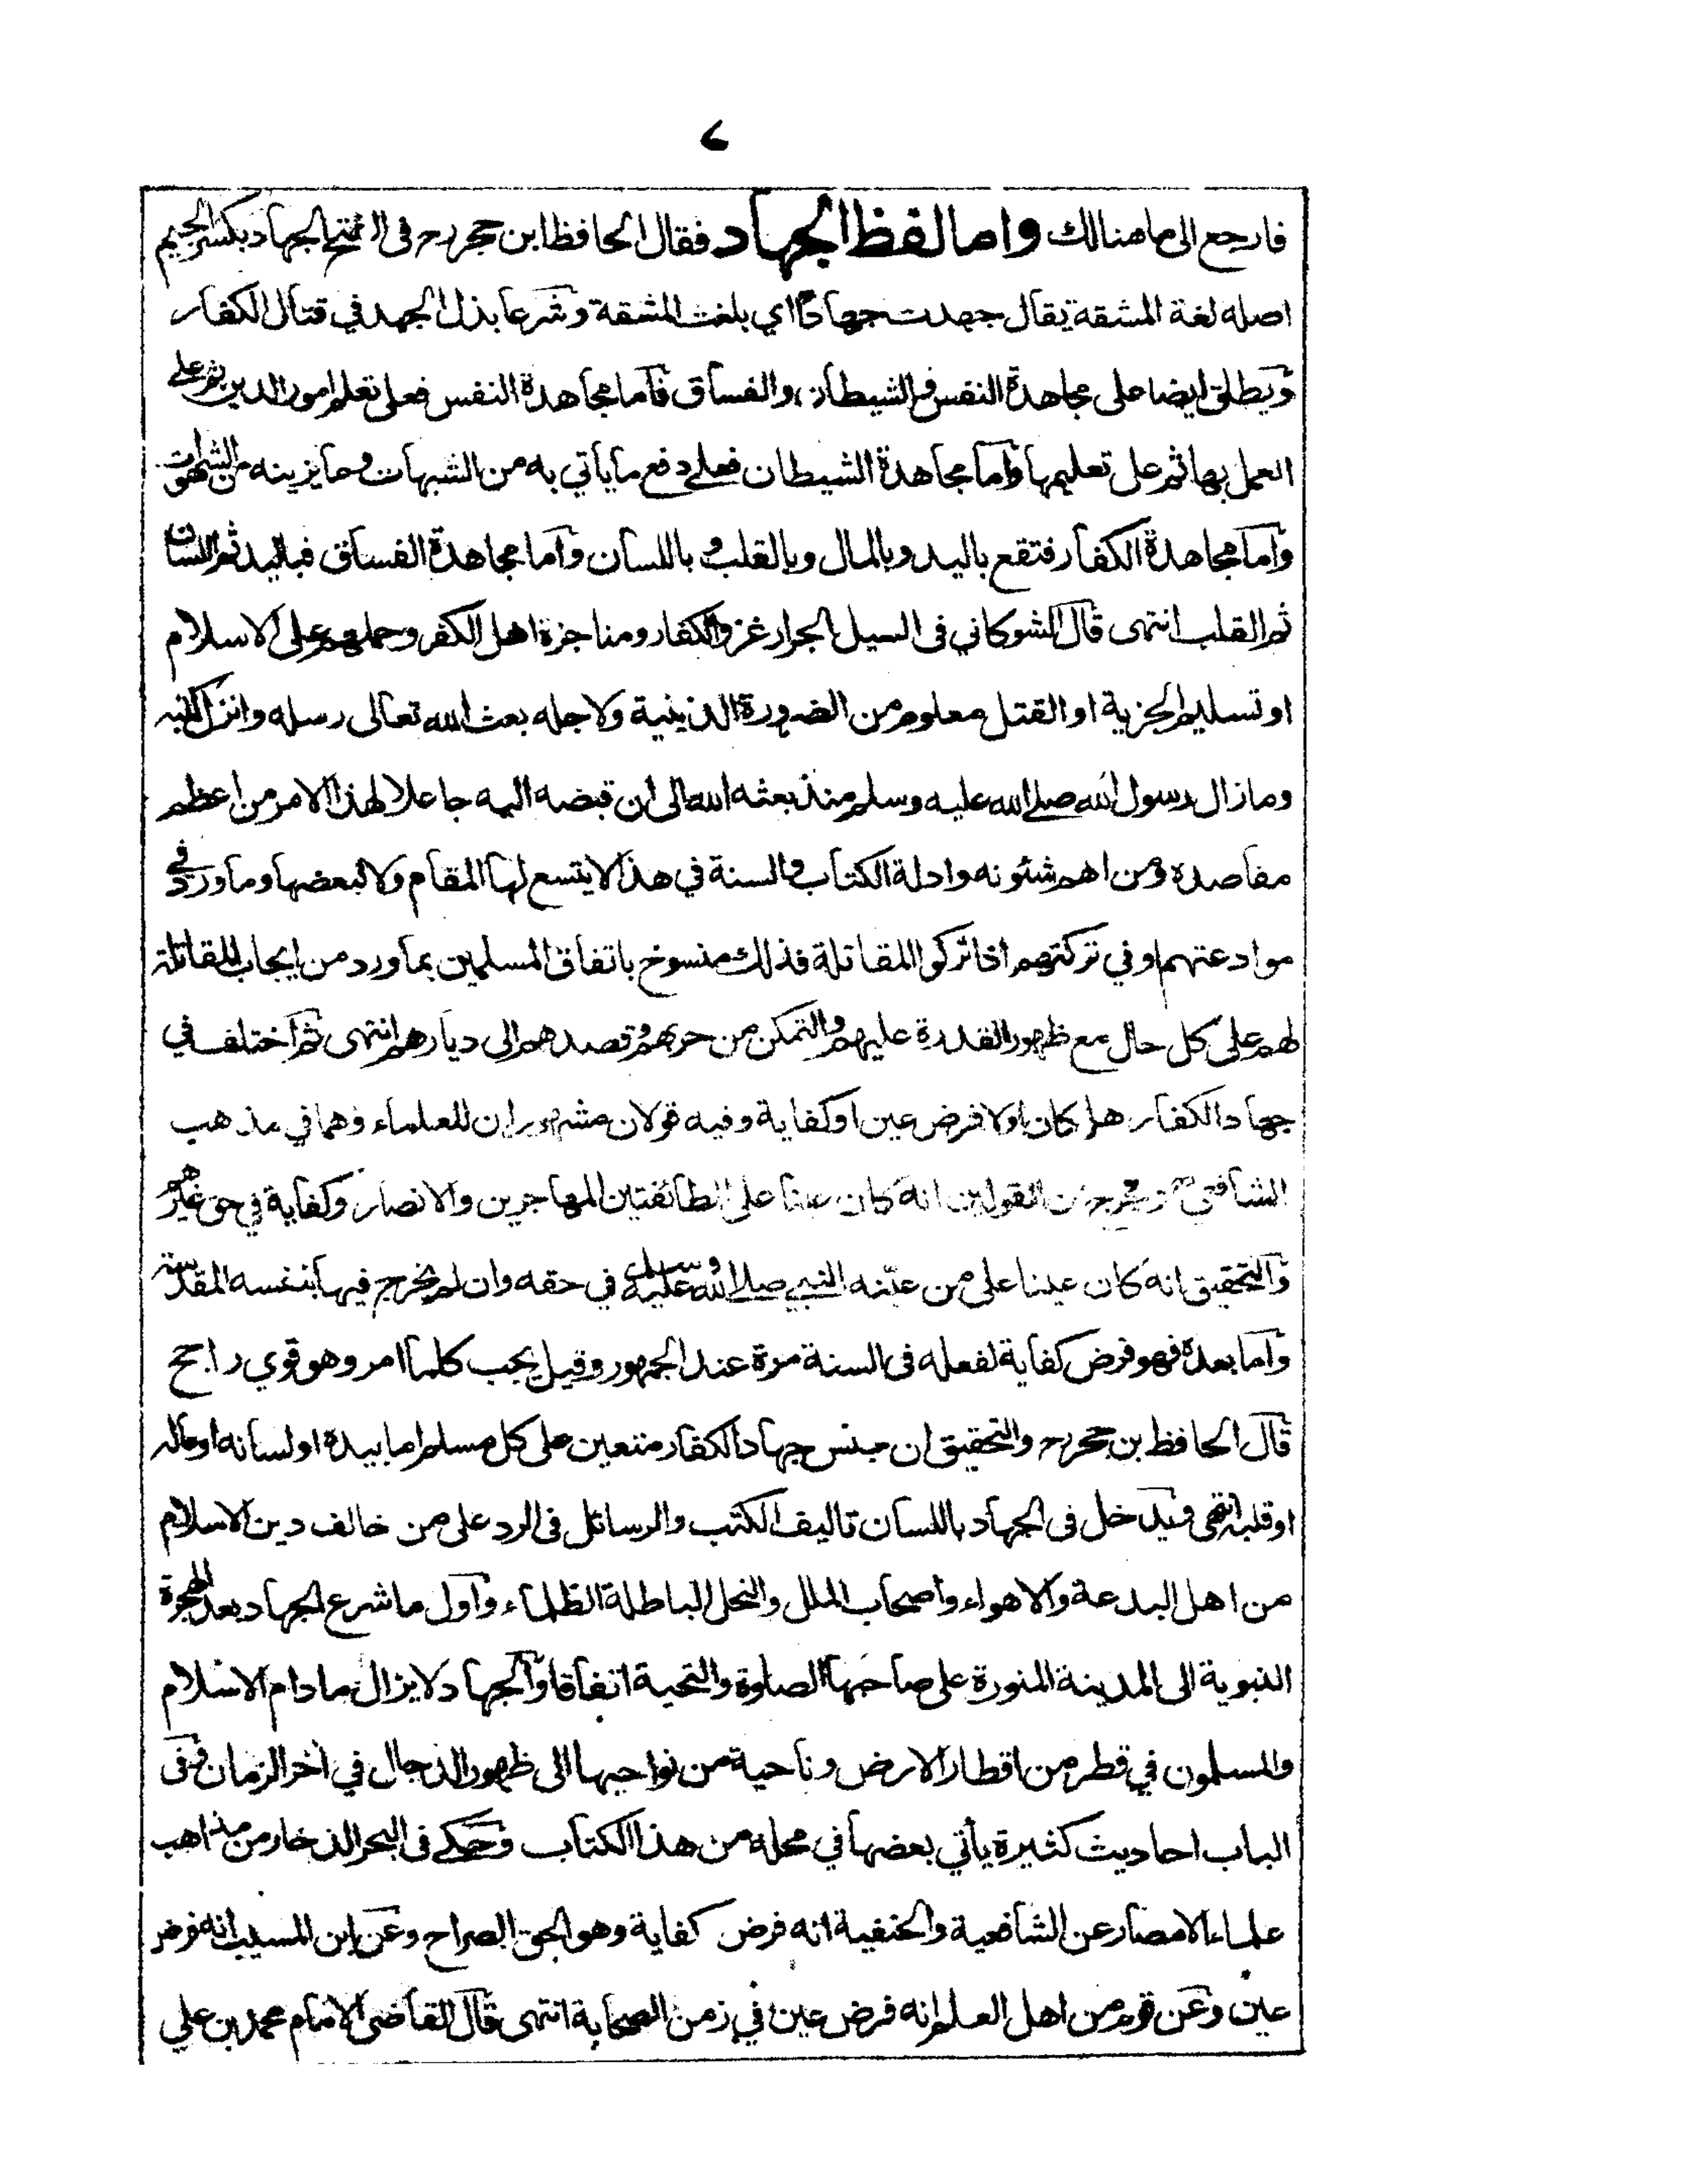 ٧
فارجع الى ما هنالك واما لفظ الجهاد فقال الحافظ ابن حجر رح فى الفتح الجهاد بكسر الجيم
اصله لغة المشقة يقال جهدت جهادًا اي بلغت المشقة وشرعا بذل الجهد في قتال الكفار
ويطلق ايضا على مجاهدة النفس والشيطان والفساق فاما مجاهدة النفس فعلى تعلم امور الدين ثم على
العمل بها ثم على تعليمها واما مجاهدة الشيطان فعلى دفع ما يأتي به من الشبهات وما يزينه من الشهوات
واما مجاهدة الكفار فتقع باليد وبالمال وبالقلب و باللسان واما مجاهدة الفساق فباليد ثم اللسان
ثم القلب انتهى قال الشوكاني فى السيل الجرار غزو الكفار ومناجزة اهل الكفر وحملهم على الاسلام
او تسليم الجزية او القتل معلوم من الضرورة الدينية ولاجله بعث الله تعالى رسله وانزل كتبه
وما زال رسول الله صلى الله عليه وسلم منذ بعثه الله الى ان قبضه اليه جاعلا لهذا الامر من اعظم
مقاصده ومن اهم شئونه وادلة الكتاب والسنة في هذا لا يتسع لها المقام ولا لبعضها وما ورد في
موادعتهم او في تركتهم اذا تركوا المقاتلة فذلك منسوخ باتفاق المسلمين بما ورد من ايجاب المقاتلة
لهم على كل حال مع ظهور القدرة عليهم والتمكن من حربهم وقصدهم الى ديارهم انتهى ثم اختلف في
جهاد الكفار هل كان اولا فرض عين او كفاية وفيه قولان مشهوران للعلماء وهما في مذهب
الشافعي رح القولين انه كان عينا على الطائفتين المهاجرين والانصار وكفاية في حق غيرهم
والتحقيق انه كان عينا على من عيّنه النبي صلى الله عليه وسلم في حقه وان لم يخرج فيها بنفسه المقدسة
واما بعده فهو فرض كفاية لفعله فى السنة مرة عند الجمهور وقيل يجب كلما امر وهو قوي راجح
قال الحافظ بن حجر رح والتحقيق ان جنس جهاد الكفار متعين على كل مسلم اما بيده او لسانه او ماله
او قلبه انتهى ويدخل فى الجهاد باللسان تاليف الكتب والرسائل فى الرد على من خالف دين الاسلام
من اهل البدعة والاهواء واصحاب الملل والنحل الباطلة الظلماء واول ما شرع الجهاد بعد الهجرة
النبوية الى المدينة المنورة على صاحبها الصلوة والتحية اتفاقا والجهاد لا يزال ما دام الاسلام
والمسلمون في قطر من اقطار الارض وناحية من نواحيها الى ظهور الدجال في آخر الزمان وفى
الباب احاديث كثيرة يأتي بعضها في محله من هذا الكتاب وحكى فى البحر الذخار من مذاهب
علماء الامصار عن الشافعية والحنفية انه فرض كفاية وهو الحق الصراح وعن ابن المسيب انه فرض
عين وعن قوم من اهل العلم انه فرض عين في زمن الصحابة انتهى قال القاضى الامام محمد بن علي